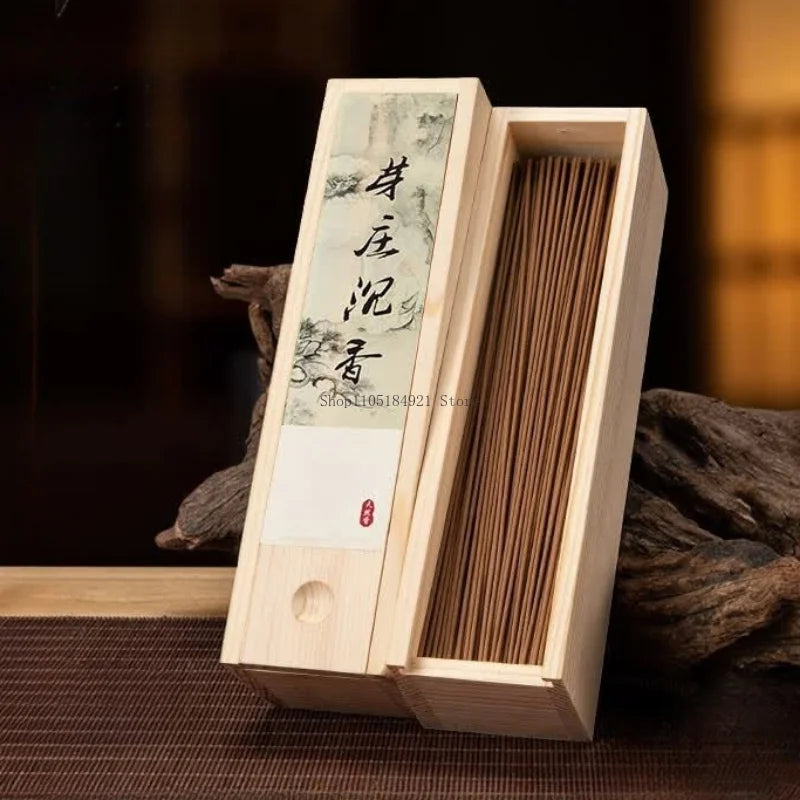 芽庄沉香
Shop1105184921 Store
天然香